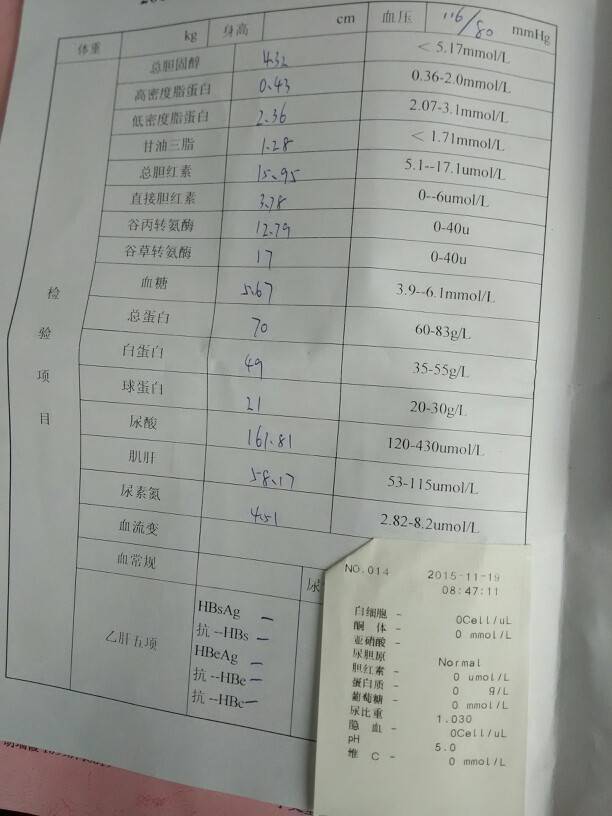 体重 kg 身高 cm 血压 116/80 mmHg
总胆固醇 4.32 < 5.17mmol/L
高密度脂蛋白 0.43 0.36-2.0mmol/L
低密度脂蛋白 2.36 2.07-3.1mmol/L
甘油三脂 1.28 < 1.71mmol/L
总胆红素 15.95 5.1--17.1umol/L
直接胆红素 3.78 0--6umol/L
谷丙转氨酶 12.79 0-40u
谷草转氨酶 17 0-40u
血糖 5.67 3.9--6.1mmol/L
总蛋白 70 60-83g/L
白蛋白 49 35-55g/L
球蛋白 21 20-30g/L
尿酸 161.81 120-430umol/L
肌肝 58.17 53-115umol/L
尿素氮 4.51 2.82-8.2umol/L
血流变
血常规 尿
检验项目
乙肝五项
HBsAg —
抗--HBs —
HBeAg —
抗--HBe —
抗--HBc —
NO.014 2015-11-19
08:47:11
白细胞 - 0Cell/uL
酮 体 - 0 mmol/L
亚硝酸 -
尿胆原 Normal
胆红素 - 0 umol/L
蛋白质 - 0 g/L
葡萄糖 - 0 mmol/L
尿比重 1.030
隐 血 - 0Cell/uL
pH 5.0
维 C - 0 mmol/L